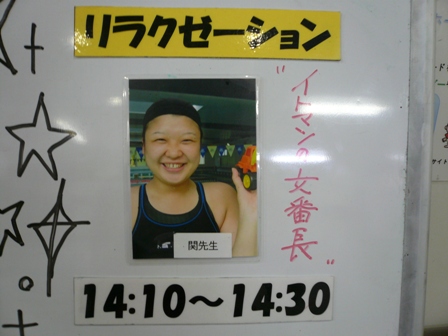 リラクゼーション
"イトマンの女番長"
関先生
14:10〜14:30